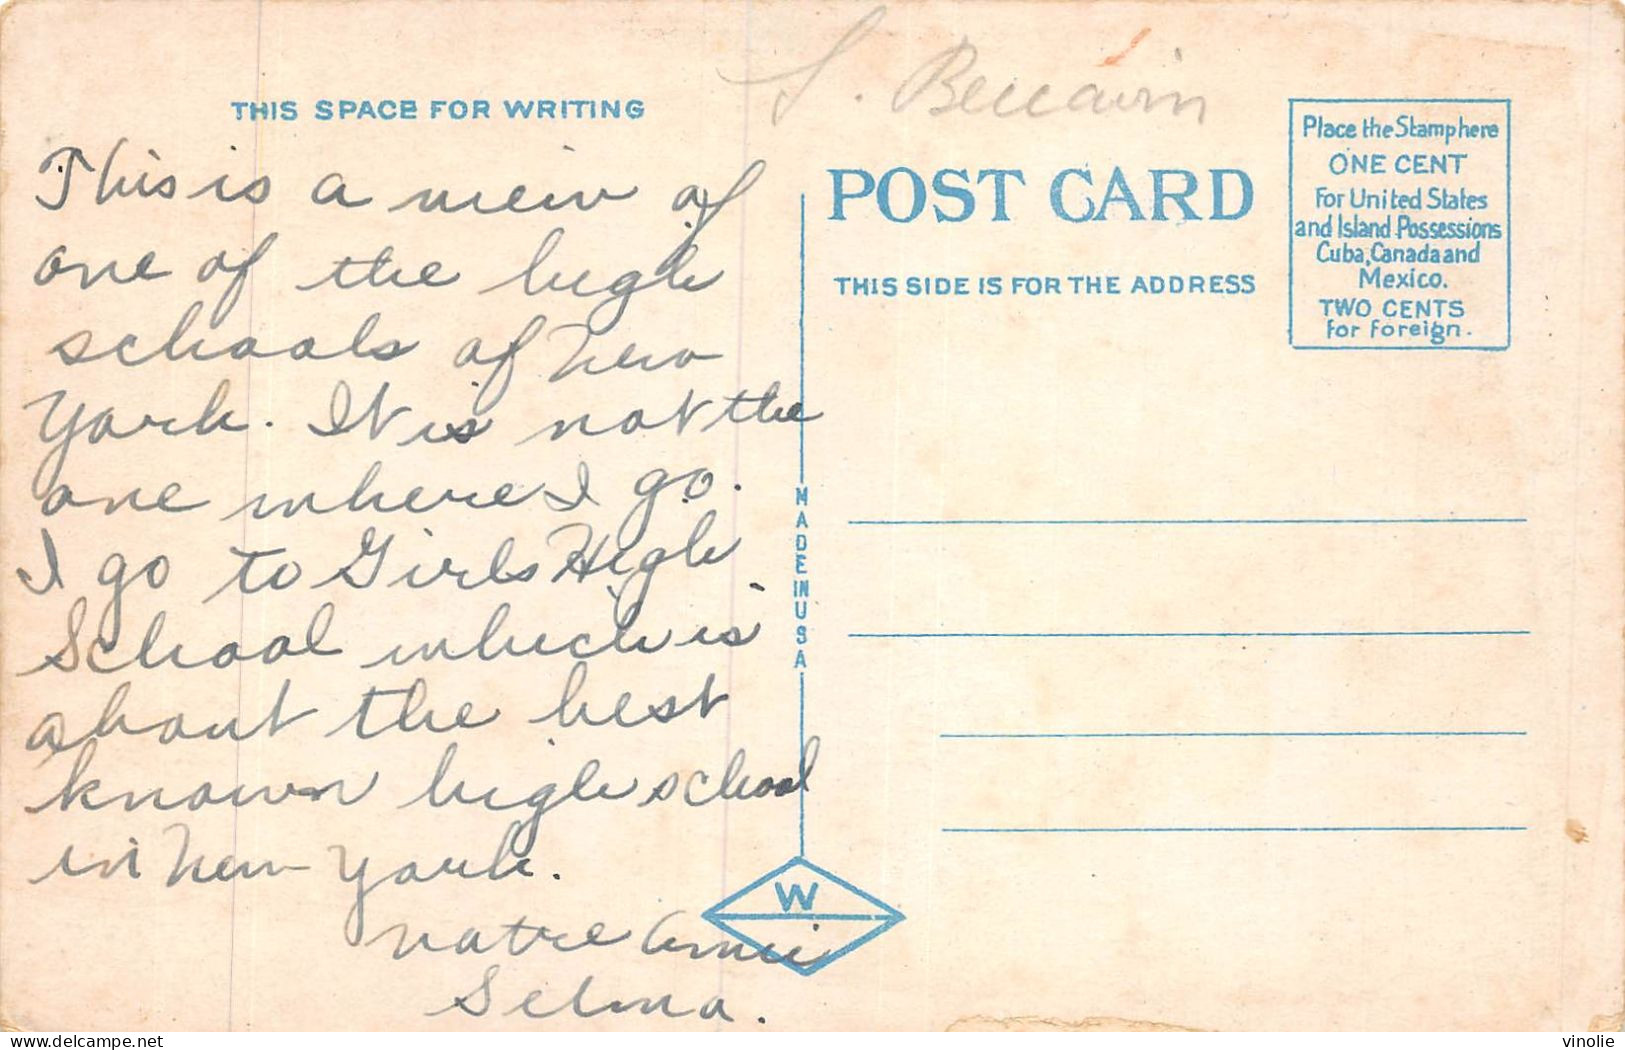 THIS SPACE FOR WRITING
This is a view of
one of the high
schools of New
York. It is not the
one where I go.
I go to Girls High
School which is
about the best
known high school
in New York.
notre amie
Selma.
POST CARD
THIS SIDE IS FOR THE ADDRESS
Place the Stamp here
ONE CENT
For United States
and Island Possessions
Cuba, Canada and
Mexico.
TWO CENTS
for foreign.
MADE IN USA
W
delcampe.net
vinolie